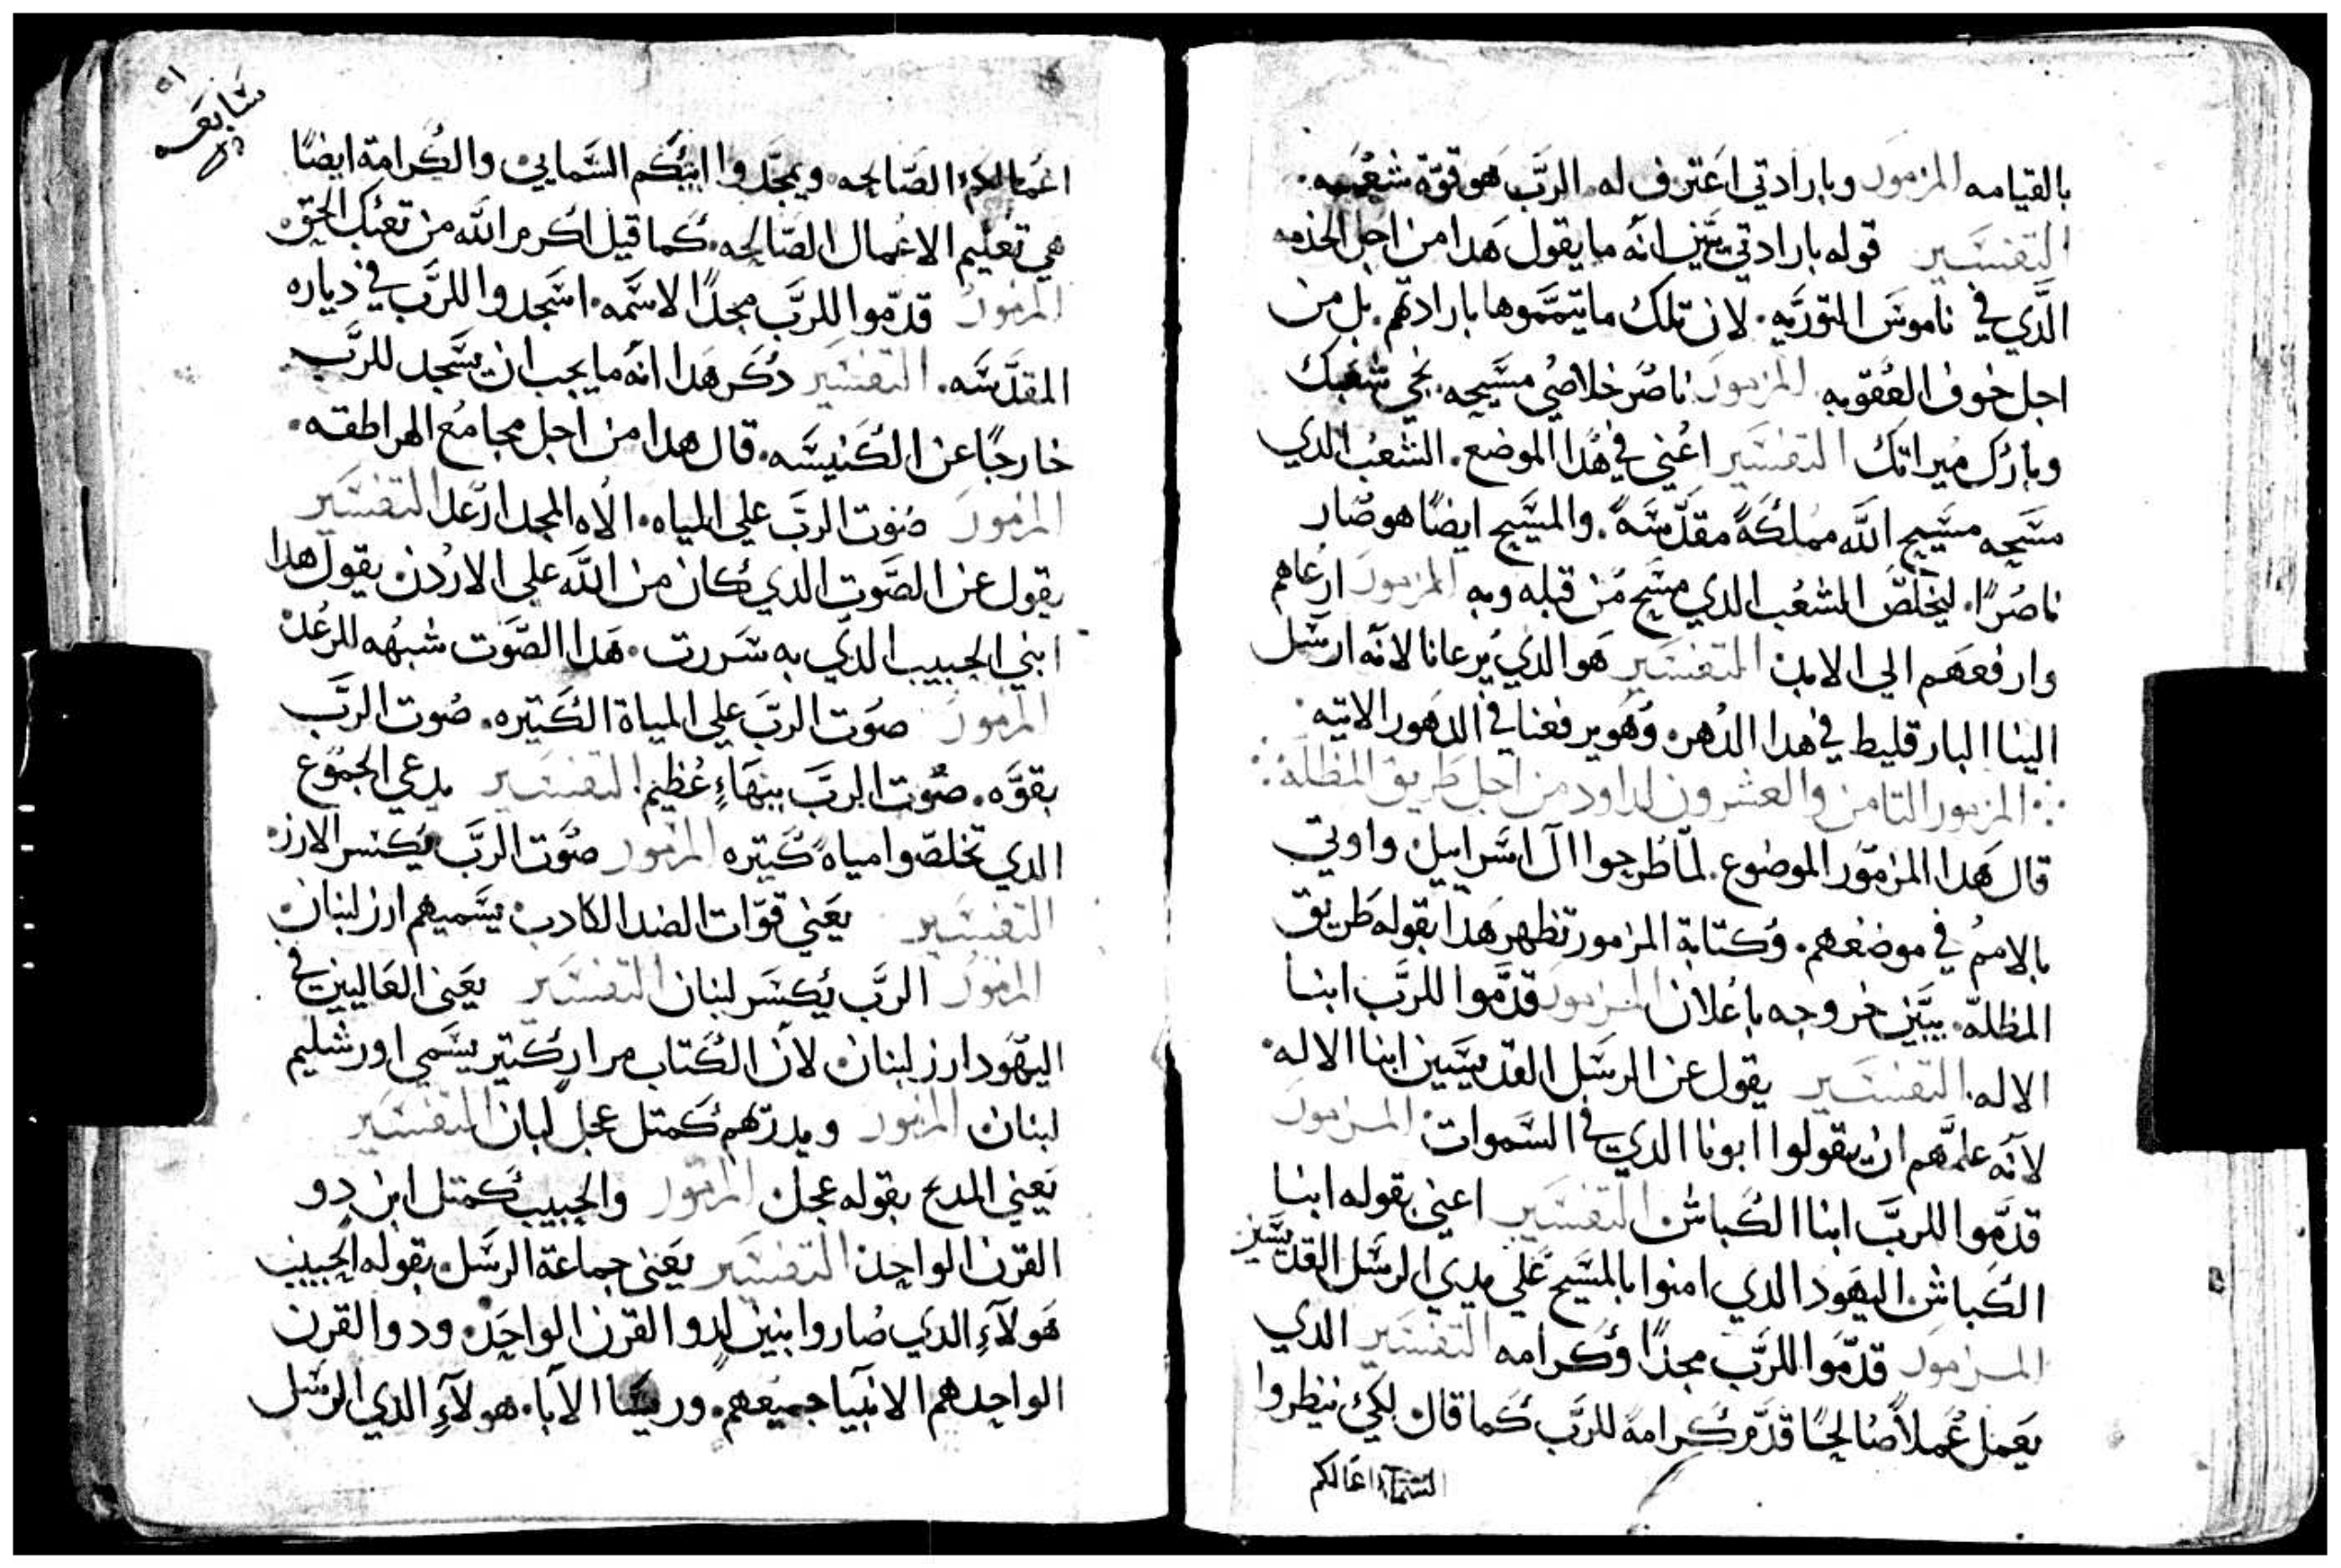 بالقيامه المزمور وبارادتي اعترف له الرَّب هو قوّة شعبه.
التفسير قوله بارادتي يبيّن انه ما يقول هدا من اجل الخدمه
الَّدي في ناموس التوريه. لان تلك ما يتمموها بارادتهم. بل من
اجل خوف العقوبه المزمور ناصر خلاصي مسيحه. نجي شعبك
وبارك ميراتك التفسير اعني في هدا الموضع. الشعب الدي
مسحه مسيح الله مملكةً مقدّسةً. والمسيح ايضًا هو صار
ناصرًا. ليخلص الشعب الدي مسح من قبله وبه المزمور ارعاهم
وارفعهم الي الابد التفسير هو الدي يرعانا لانه ارسل
الينا البارقليط في هدا الدهر. وهو يرفعنا في الدهور الاتيه.
المزمور التامن والعشرون لداود من اجل طريق المظلة:
قال هدا المزمور الموضوع. لمّا طرحوا آل اسراييل واوتي
بالامم في موضعهم. وكتابة المزمور تظهر هدا بقوله طريق
المظلّة. يبيّن خروجه باعلان المزمور قدّموا للرَّب ابنا
الاله. التفسير يقول عن الرسل القديسين ابنا الاله.
لانّه علمهم ان يقولوا ابونا الدي في السموات المزمور
قدّموا للربَّ ابنا الكباش التفسير اعني بقوله ابنا
الكباش. اليهود الدي امنوا بالمسيح علي يدي الرسل القديسين
المزمور قدّموا للرَّب مجدًا وكرامه التفسير الدي
يعمل عملاً صالحًا قدّم كرامة للرَّب كما قال لكي ينظروا
اعمالكم
سابعه
٥١
اعمالكم الصّالحه. ويمجّدوا ابيكم السَّمايي. والكرامة ايضًا
هي تعليم الاعمال الصّالحه. كما قيل اكرم الله من تعبك الحق.
المزمور قدّموا للرَّب مجدًا لاسمه. اسجدوا للرَّب في دياره
المقدّسه. التفسير دكر هدا انه ما يجب ان يسَجد للرَّب
خارجًا عن الكنيسه. قال هدا من اجل مجامع الهراطقه.
المزمور صوت الربَّ علي المياه. الاه المجد ارعد التفسير
يقول عن الصَّوت الدي كان من الله علي الاردن يقول هدا
ابني الحبيب الدّي به سررت. هدا الصّوت شبهه للرعد
المزمور صوت الربَّ علي المياة الكتيره. صوت الربَّ
بقوَّه. صوت الربَّ ببهاءٍ عظيم التفسير يدعي الجموع
الدي تخلصّوا مياه كتيره المزمور صوت الربَّ يكسر الارز.
التفسير يعني قوّات الضد الكادب يسَميهم ارز لبنان
المزمور الرَّب يكسَر لبنان التفسير يعني العاليين في
اليهود ارز لبنان. لان الكتاب مرار كتير يسَمي اورشليم
لبنان المزمور ويدرّهم كمتل عجل لبان التفسير
يعني المدبح بقوله عجل المزمور والحبيب كمتل ابن دو
القرن الواحد التفسير يعني جماعة الرسَل بقوله الحبيب
هولآءِ الدي صاروا بنين لدو القرن الواحد. ودو القرن
الواحد هم الانبيا جميعهم. وريسا الآبا. هولآءِ الدي الرسَل